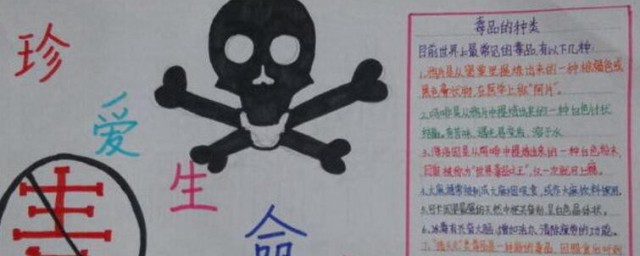 珍
爱
生
命
毒品的种类
目前世界上最常见的毒品,有以下几种:
1.鸦片是从罂粟里提炼出来的一种棕褐色或
黑色膏状物,在医学上做"阿片"。
2.吗啡是从鸦片中提炼出来的一种白色针状
结晶,有苦味,遇光易变质,溶于水
3.海洛因是从吗啡中提炼出来的一种白色粉末,
被称为"世界毒品之王",仅一次就可上瘾。
4.大麻通常制成大麻烟吸食,或作大麻饮料饮用
5.可卡因是最强的天然中枢兴奋剂,呈白色晶体状。
6.冰毒有兴奋大脑,增加活力,消除疲劳的功能。
7."摇头丸"类毒品是一种新的毒品,